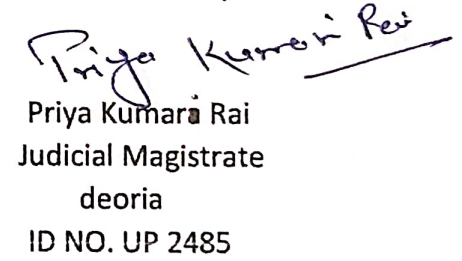 Priya Kumari Rai
Priya Kumari Rai
Judicial Magistrate
deoria
ID NO. UP 2485